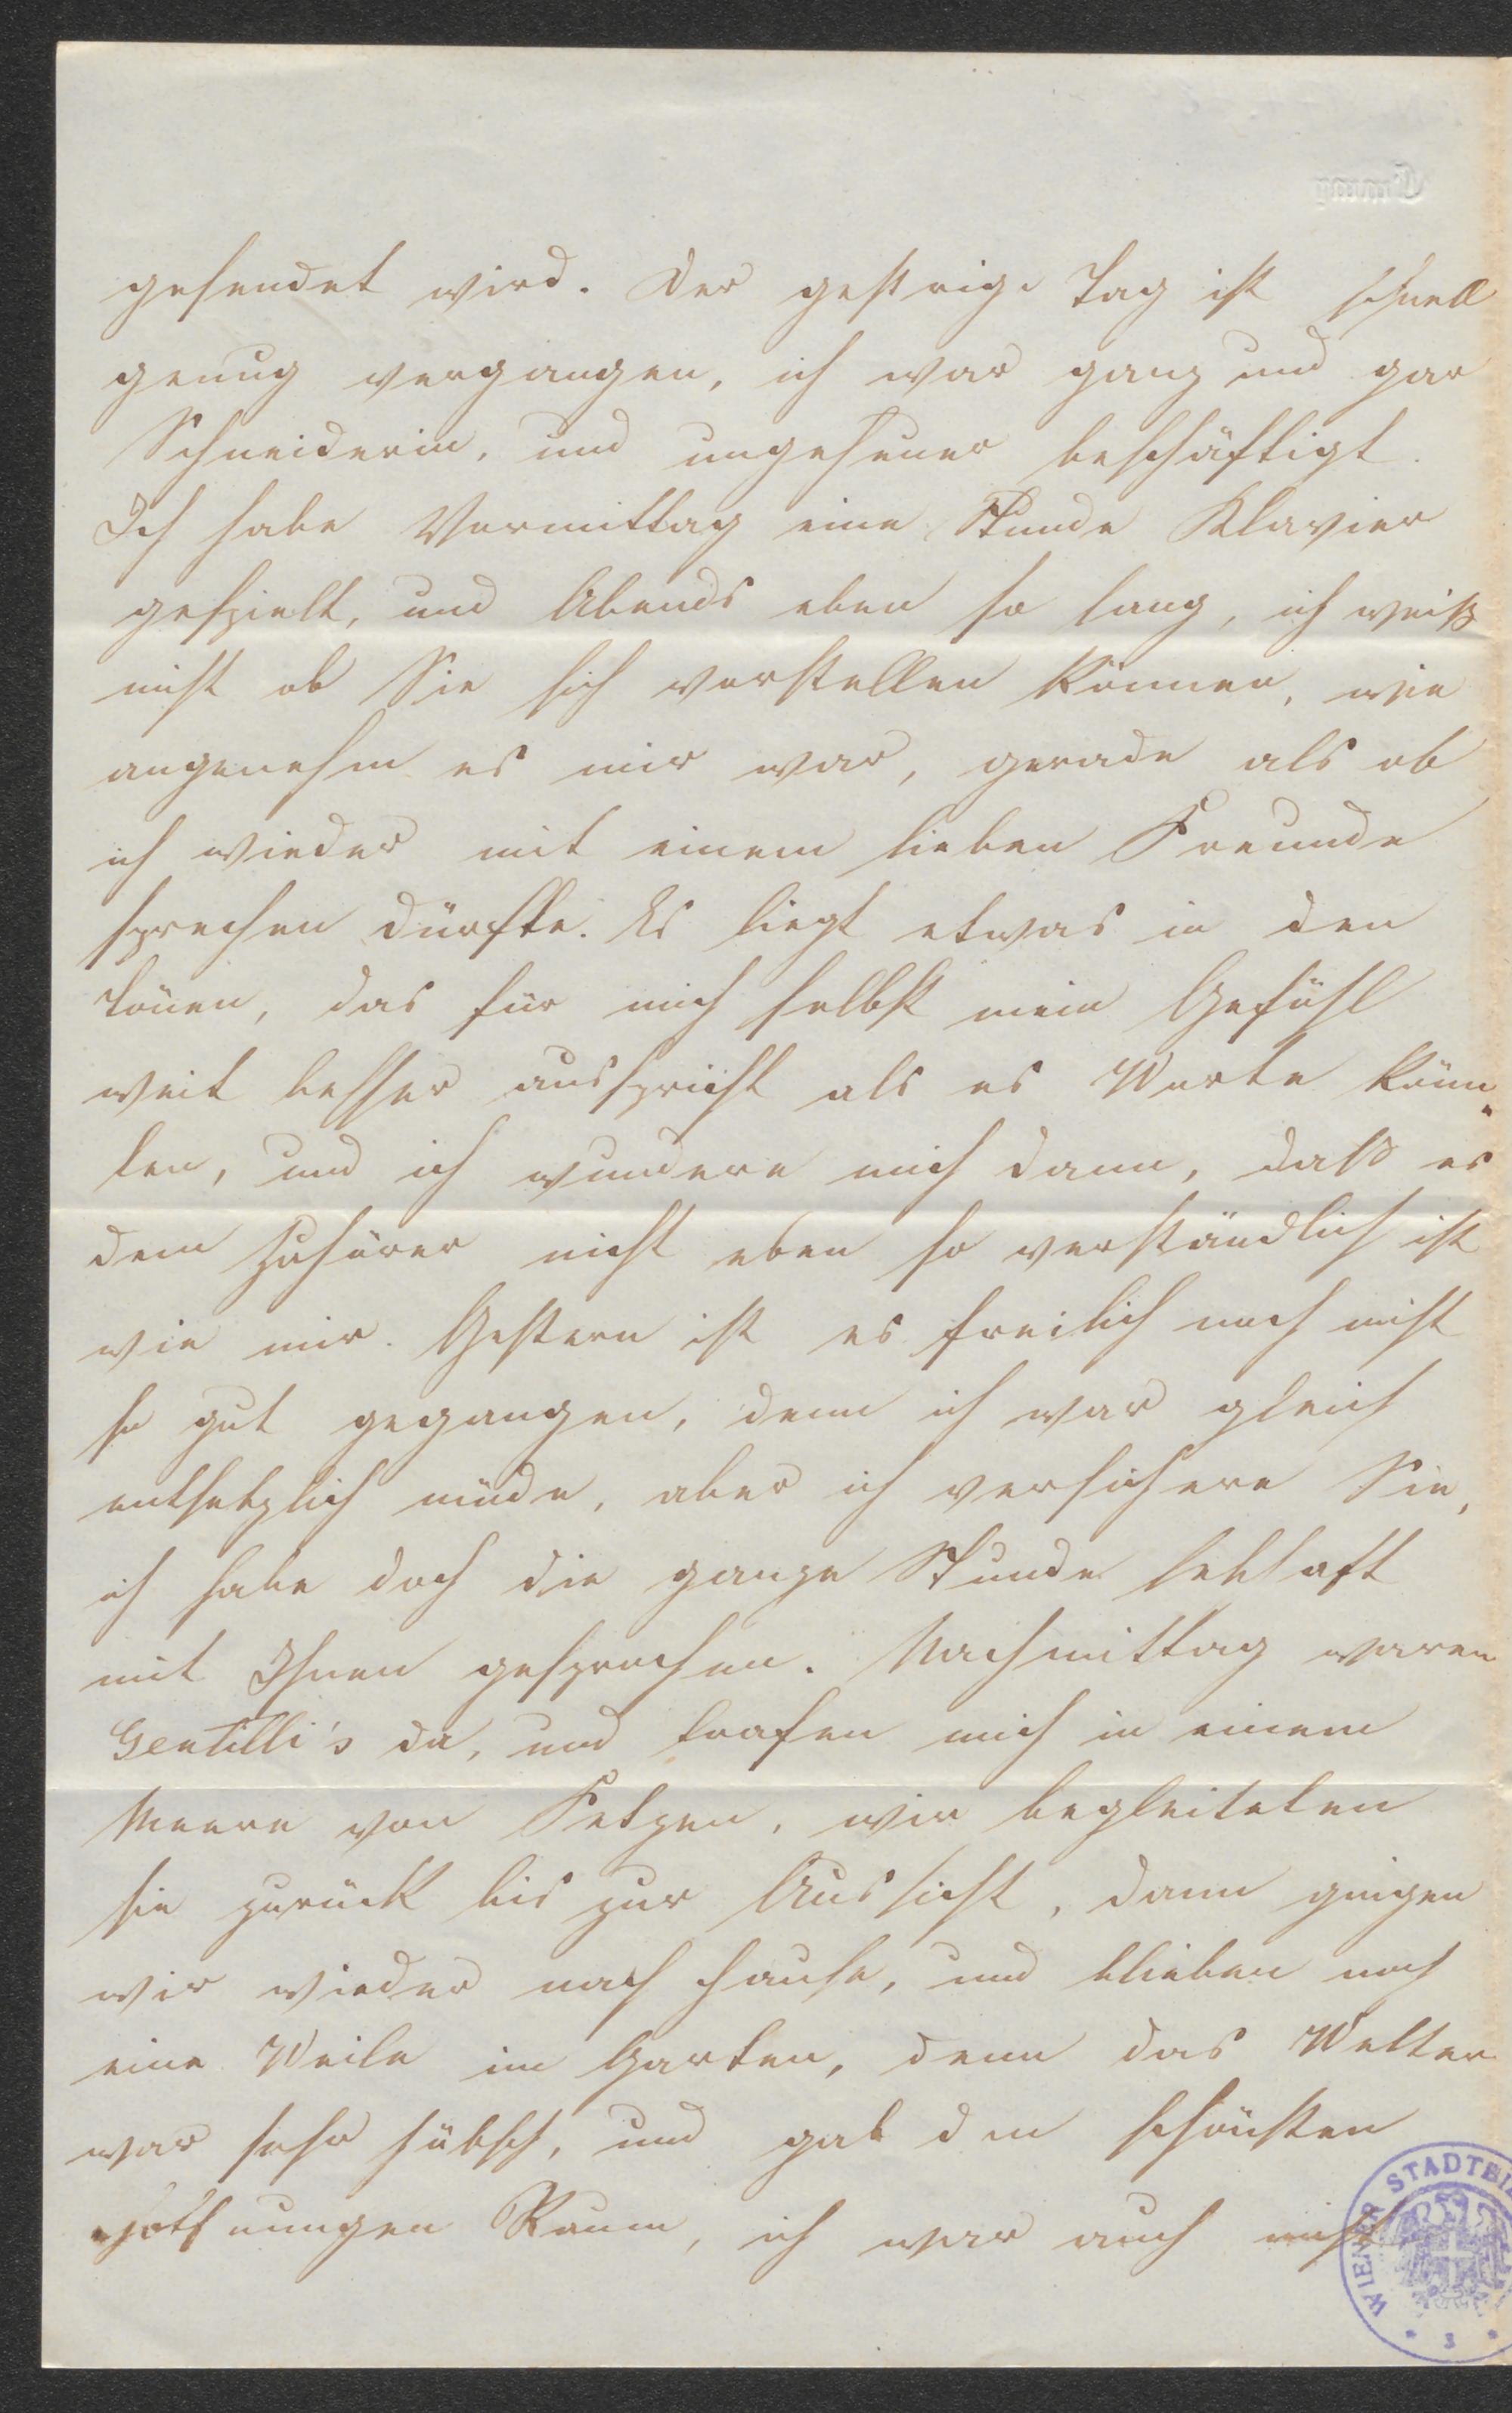 gesendet wird. Der gestrige Tag ist schnell
genug vergangen, ich war ganz und gar
Schneiderin, und ungeheuer beschäftigt.
Ich habe Vormittag eine Stunde Klavier
gespielt, und Abends eben so lang, ich weiß
nicht ob Sie sich vorstellen können, wie
angenehm es mir war, gerade als ob
ich wieder mit einem lieben Freunde
sprechen dürfte. Es liegt etwas in den
Tönen, das für mich selbst mein Gefühl
weit besser ausspricht als es Worte könn„
ten, und ich wundere mich dann, daß es
dem Zuhörer nicht eben so verständlich ist
wie mir. Gestern ist es freilich noch nicht
so gut gegangen, denn ich war gleich
entsetzlich müde, aber ich versichere Sie,
ich habe doch die ganze Stunde lebhaft
mit Ihnen gesprochen. Nachmittag waren
Gentilli's da, und trafen mich in einem
Meere von Fetzen, wir begleiteten
sie zurück bis zur Aussicht, dann gingen
wir wieder nach Hause, und blieben noch
eine Weile im Garten, denn das Wetter
war sehr hübsch, und gab den schönsten
Hoffnungen Raum, ich war auch nicht
WIENER STADTBI
* 3 *